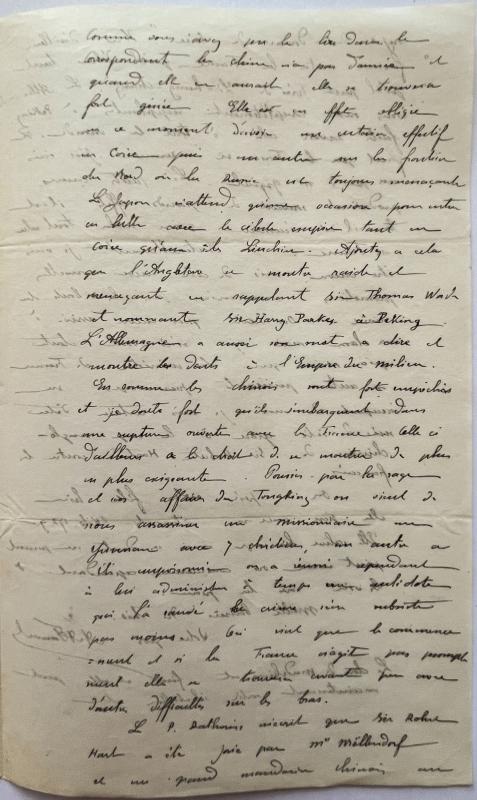 comme vous savez par le lire dans le
correspondant la chine n'a pas d'armée et
quand elle en aurait elle se trouvera
fort gênée Elle est en effet obligée
en ce moment d'avoir un certain effectif
en Corée puis un autre sur les frontières
du Nord où la Russie est toujours menaçante
Le Japon n'attend qu'une occasion pour entrer
en lutte avec le céleste empire tant en
Corée qu'aux îles Liuchiu. Ajoutez a cela
que l'Angleterre se montre raide et
menaçant en rappelant Sir Thomas Wade
et nommant Sir Harry Parkes à Peking
L'Allemagne a aussi son mot a dire et
montre les dents à l'Empire du milieu.
En somme les chinois sont fort empêchés
et je doute fort qu'ils s'embarquent dans
une rupture ouverte avec la France. Celle ci
d'ailleurs a le droit de se montrer de plus
en plus exigeante. Poussés par la rage
et ces affaires du Tongking on vient de
nous assassiner un missionnaire au
avec 7 chrétiens, un autre a
été empoisonné on a réussi cependant
à lui administrer à temps un antidote
qui l'a sauvé le crime n'en subsiste
pas moins. Ceci n'est que le commence
=ment et si la France n'agit pas prompte
ment elle se trouvera avant peu avec
d'autres difficultés sur les bras.
Le P. m'écrit que Sir Robert
Hart a été joué par Mr Möllendorf
et un grand mandarin chinois au